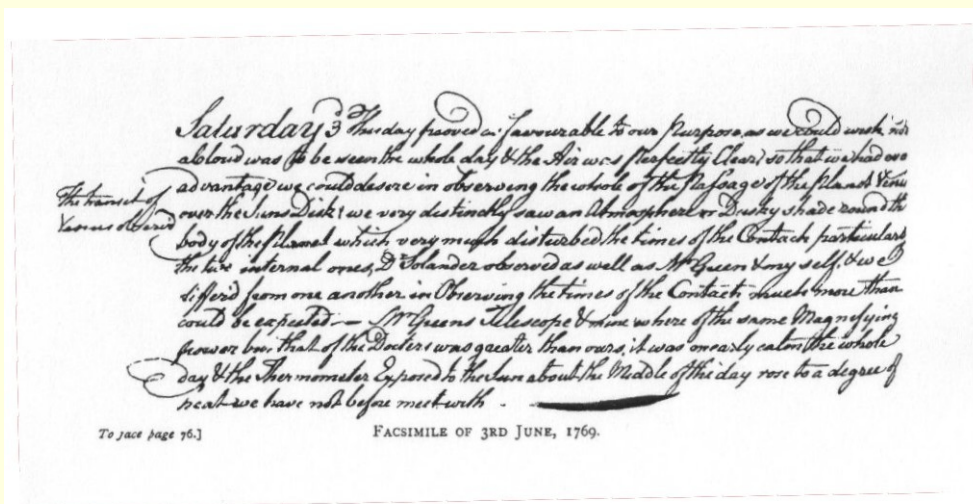 Saturday 3d This day proved as favourable to our Purpose as we could wish, not
a Cloud was to be seen the whole day & the Air was perfectly Clear, so that we had eve
The transit of
Venus observed
advantage we could desire in observing the whole of the Passage of the Planet Venus
over the Suns Disk: we very distinctly saw an Atmosphere or Dusky shade round the
body of the Planet which very much disturbed the times of the Contacts particularly
the two internal ones, Dr Solander observed as well as Mr Green & my self, & we
differ'd from one another in Observing the times of the Contacts much more than
could be expected — Mr Greens Telescope & mine where of the same Magnifying
power but that of the Doctors was greater than ours, it was nearly calm the whole
day & the Thermometer Exposed to the Sun about the Middle of the day rose to a degree of
heat we have not before meet with .
To face page 76.]
FACSIMILE OF 3RD JUNE, 1769.